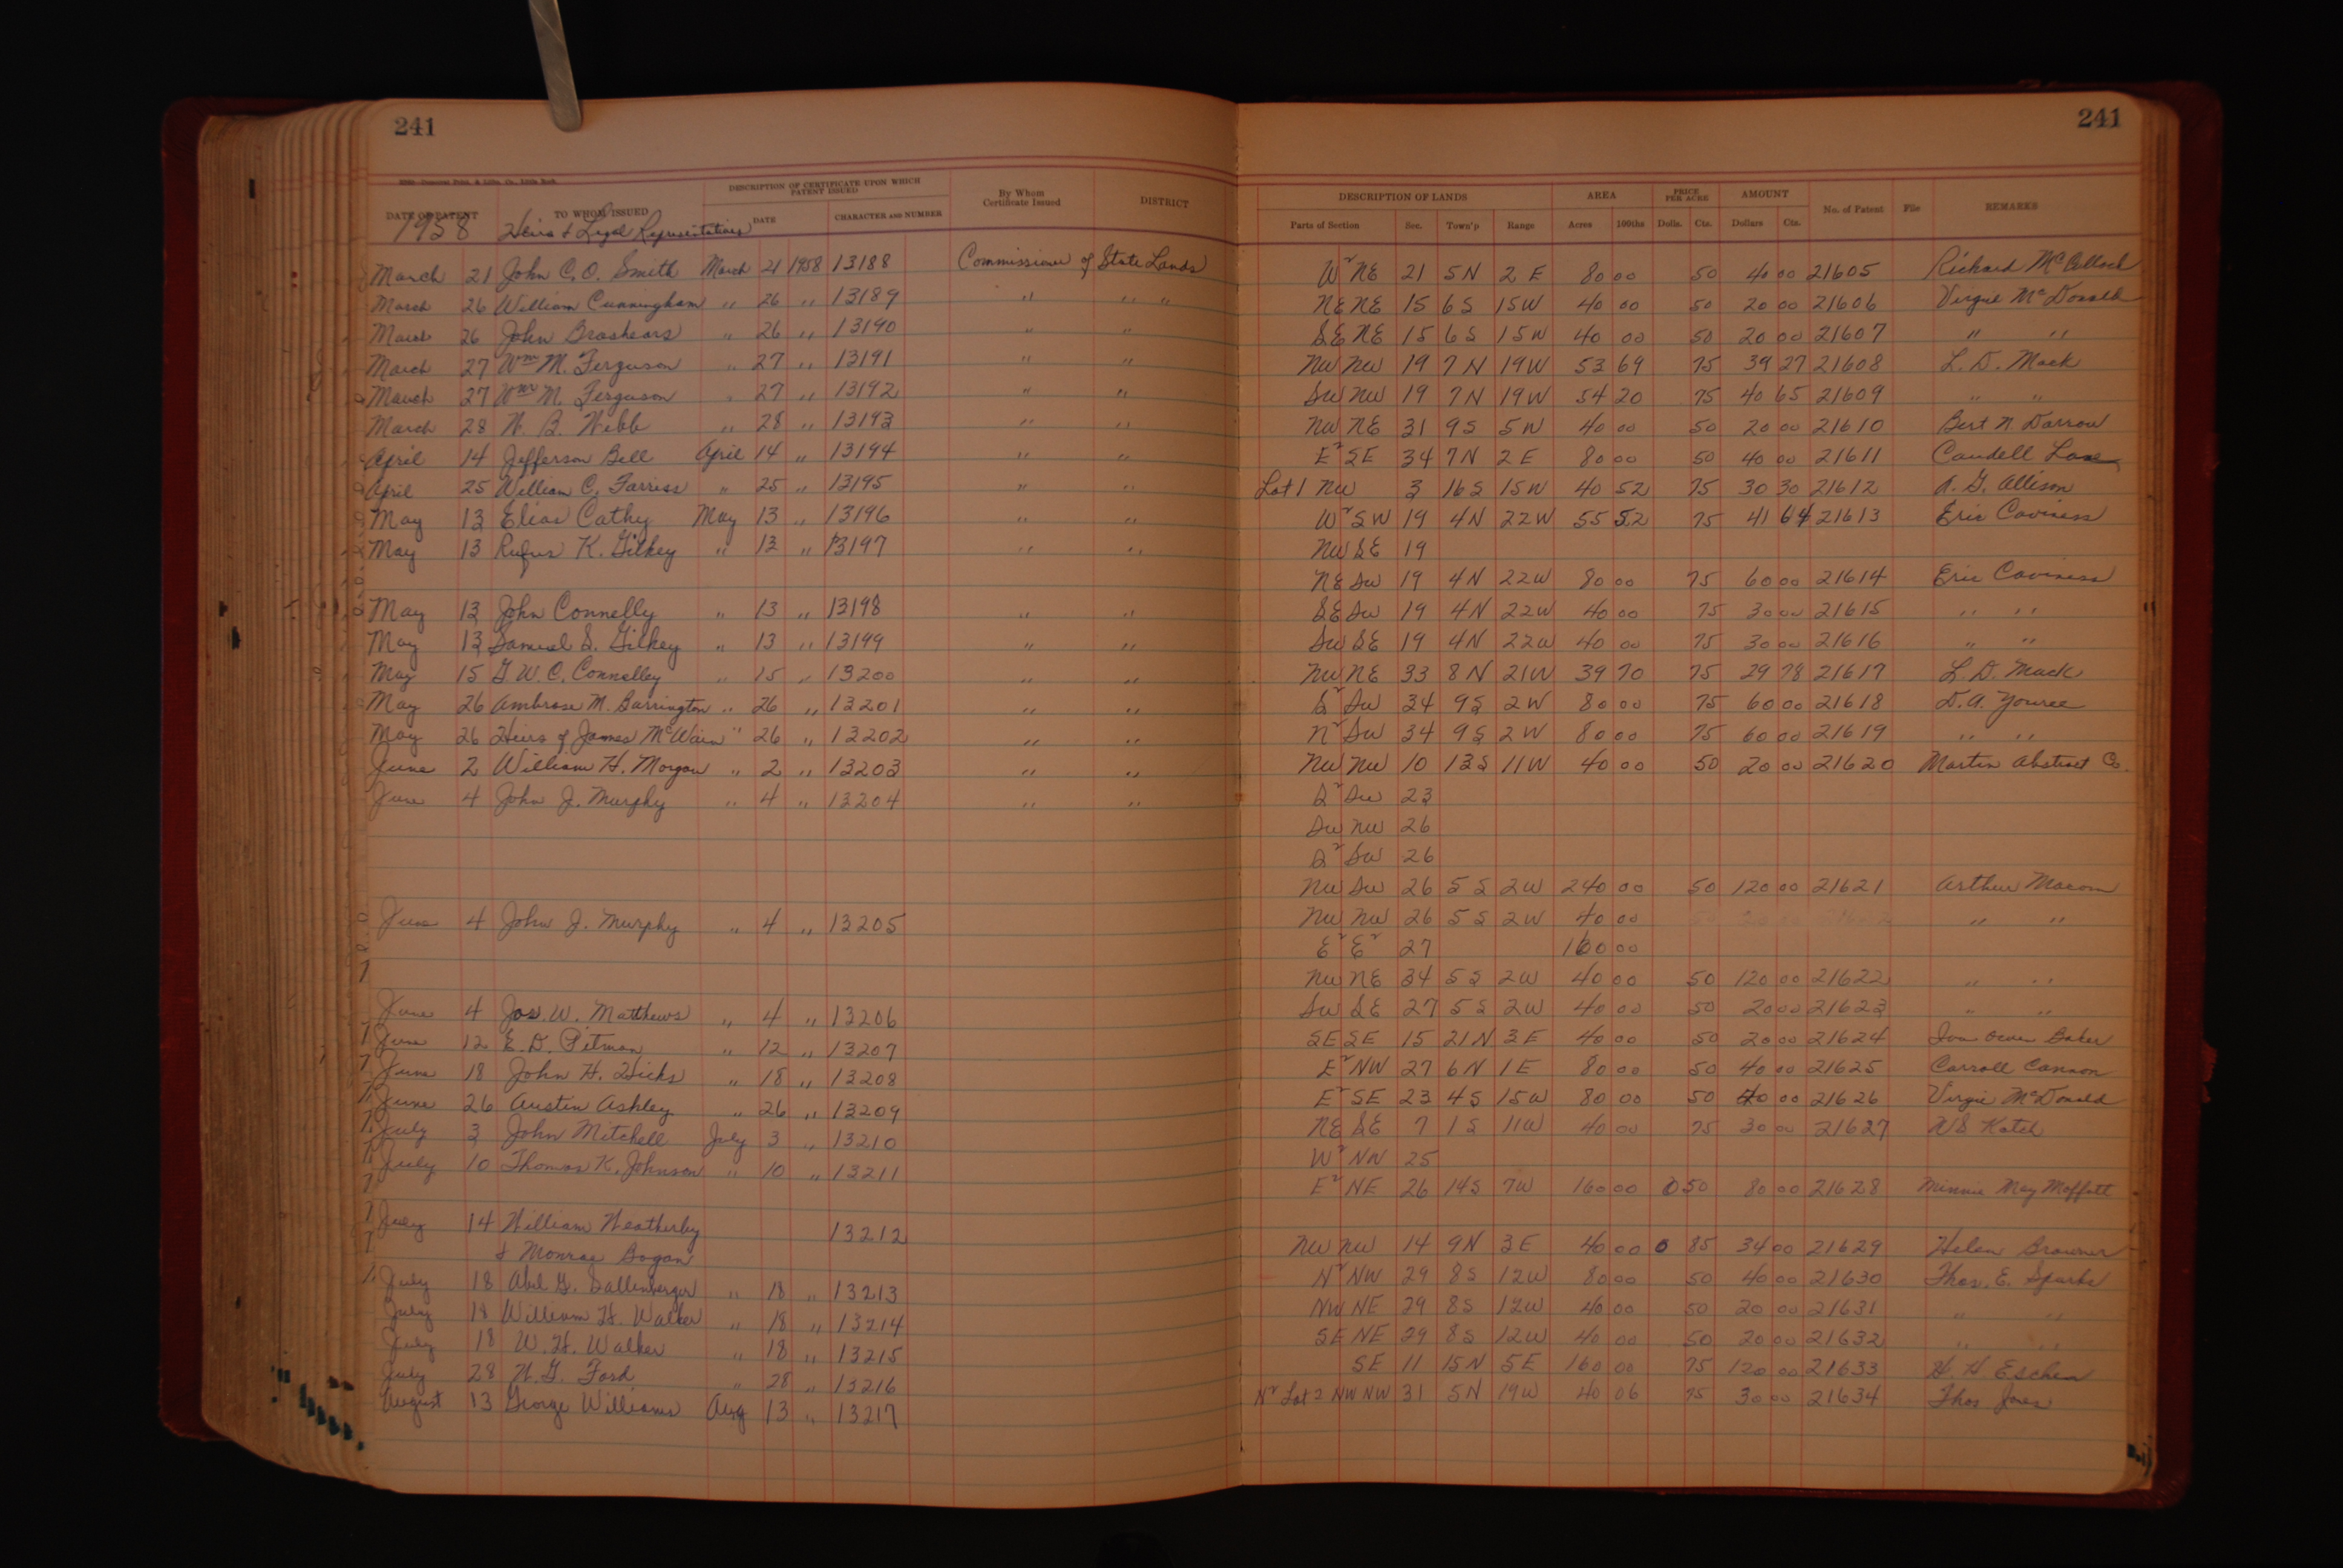 241
241
DESCRIPTION OF CERTIFICATE UPON WHICH PATENT ISSUED
DATE OF PATENT TO WHOM ISSUED DATE CHARACTER AND NUMBER By Whom Certificate Issued DISTRICT
DESCRIPTION OF LANDS AREA PRICE PER ACRE AMOUNT No. of Patent File REMARKS
Parts of Section Sec. Town'p Range Acres 100ths Dolls. Cts. Dollars Cts.
1958 Heirs & Legal Representatives
March 21 John C. O. Smith March 21 1958 13188 Commissioner of State Lands W² NE 21 5N 2E 80 00 50 40 00 21605 Richard McCulloch
March 26 William Cunningham " 26 " 13189 " " " NE NE 15 6S 15W 40 00 50 20 00 21606 Virgil McDonald
March 26 John Brashears " 26 " 13190 " " SE NE 15 6S 15W 40 00 50 20 00 21607 " "
March 27 Wm M. Ferguson " 27 " 13191 " " NW NW 19 7N 19W 53 69 75 39 27 21608 L. D. Mack
March 27 Wm M. Ferguson " 27 " 13192 " " SW NW 19 7N 19W 54 20 75 40 65 21609 " "
March 28 W. B. Webb " 28 " 13193 " " NW NE 31 9S 5W 40 00 50 20 00 21610 Bert N Darrow
April 14 Jefferson Bell April 14 " 13194 " " E² SE 34 7N 2E 80 00 50 40 00 21611 Caudell Lane
April 25 William C. Farriss " 25 " 13195 " " Lot 1 NW 3 16S 15W 40 52 75 30 30 21612 A. G. Allison
May 13 Elias Cathy May 13 " 13196 " " W² SW 19 4N 22W 55 52 75 41 64 21613 Eric Caviness
May 13 Rufus K. Gilkey " 13 " 13197 " " NW SE 19
NE SW 19 4N 22W 80 00 75 60 00 21614 Eric Caviness
May 13 John Connelly " 13 " 13198 " " SE SW 19 4N 22W 40 00 75 30 00 21615 " "
May 13 Samuel S. Gilkey " 13 " 13199 " " SW SE 19 4N 22W 40 00 75 30 00 21616 " "
May 15 G. W. C. Connelley " 15 " 13200 " " NW NE 33 8N 21W 39 70 75 29 78 21617 L. D. Mack
May 26 Ambrose M. Barrington " 26 " 13201 " " S² SW 34 9S 2W 80 00 75 60 00 21618 D. A. Youree
May 26 Heirs of James McWain " 26 " 13202 " " N² SW 34 9S 2W 80 00 75 60 00 21619 " "
June 2 William H. Morgan " 2 " 13203 " " NW NW 10 13S 11W 40 00 50 20 00 21620 Martin Abstract Co.
June 4 John J. Murphy " 4 " 13204 " " S² SW 23
SW NW 26
S² SW 26
NW SW 26 5S 2W 240 00 50 120 00 21621 Arthur Macom
June 4 John J. Murphy " 4 " 13205 NW NW 26 5S 2W 40 00 " "
E² E² 27 160 00
NW NE 34 5S 2W 40 00 50 120 00 21622 " "
June 4 Jas. W. Matthews " 4 " 13206 SW SE 27 5S 2W 40 00 50 20 00 21623 " "
June 12 E. D. Pitman " 12 " 13207 SE SE 15 21N 3E 40 00 50 20 00 21624 Iva Owen Baker
June 18 John H. Hicks " 18 " 13208 E² NW 27 6N 1E 80 00 50 40 00 21625 Carroll Cannon
June 26 Austin Ashley " 26 " 13209 E² SE 23 4S 15W 80 00 50 40 00 21626 Virgie McDonald
July 3 John Mitchell July 3 " 13210 NE SE 7 1S 11W 40 00 75 30 00 21627 WS Hatch
July 10 Thomas K. Johnson " 10 " 13211 W² NW 25
E² NE 26 14S 7W 160 00 0 50 80 00 21628 Minnie May Moffatt
July 14 William Weatherby 13212
& Monroe Bogan NW NW 14 9N 3E 40 00 0 85 34 00 21629 Helen Browner
July 18 Abel G. Sallenberger " 18 " 13213 N² NW 29 8S 12W 80 00 50 40 00 21630 Thos. E. Sparks
July 18 William H. Walker " 18 " 13214 NW NE 29 8S 12W 40 00 50 20 00 21631 " "
July 18 W. H. Walker " 18 " 13215 SE NE 29 8S 12W 40 00 50 20 00 21632 " "
July 28 W. G. Ford " 28 " 13216 SE 11 15N 5E 160 00 75 120 00 21633 H. H Eschen
August 13 George Williams Aug 13 " 13217 N² Lot 2 NW NW 31 5N 19W 40 06 75 30 00 21634 Thos Jones